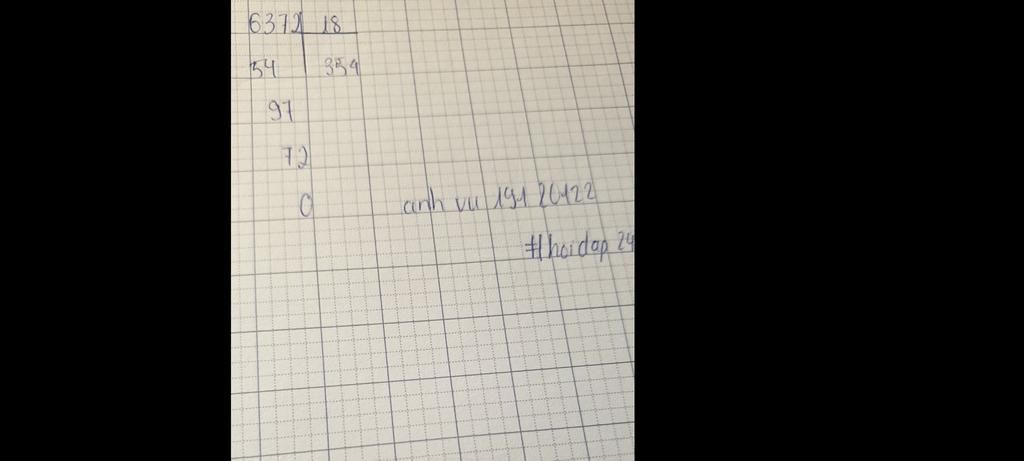 6372 18
54 354
97
72
0 anh vu 19120122
#hoidap 24